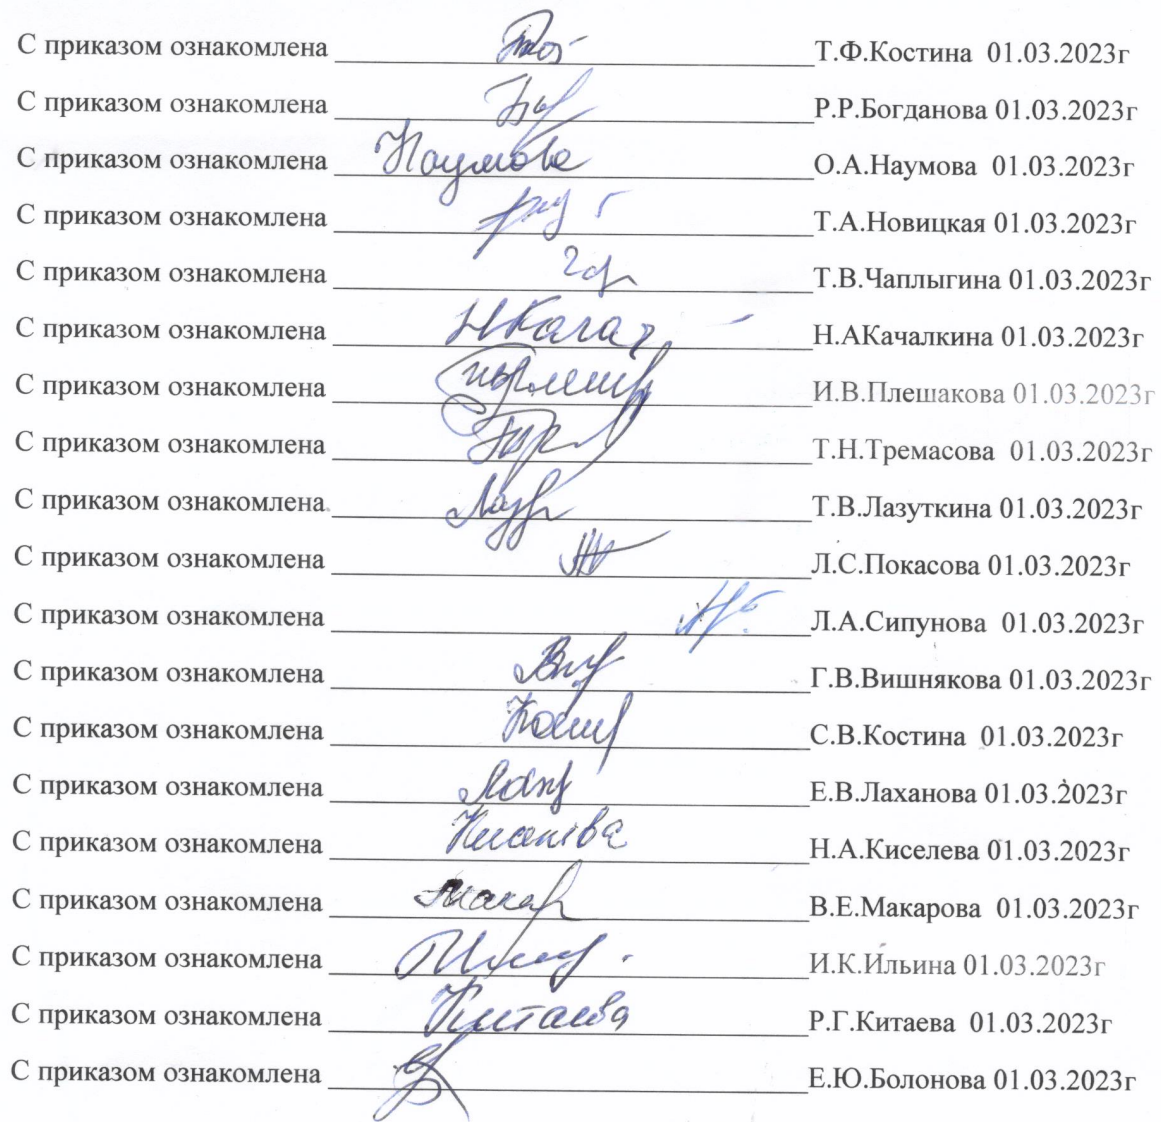 С приказом ознакомлена Т.Ф.Костина 01.03.2023г
С приказом ознакомлена Р.Р.Богданова 01.03.2023г
С приказом ознакомлена Наумова О.А.Наумова 01.03.2023г
С приказом ознакомлена Т.А.Новицкая 01.03.2023г
С приказом ознакомлена Т.В.Чаплыгина 01.03.2023г
С приказом ознакомлена Н.АКачалкина 01.03.2023г
С приказом ознакомлена И.В.Плешакова 01.03.2023г
С приказом ознакомлена Т.Н.Тремасова 01.03.2023г
С приказом ознакомлена Т.В.Лазуткина 01.03.2023г
С приказом ознакомлена Л.С.Покасова 01.03.2023г
С приказом ознакомлена Л.А.Сипунова 01.03.2023г
С приказом ознакомлена Г.В.Вишнякова 01.03.2023г
С приказом ознакомлена С.В.Костина 01.03.2023г
С приказом ознакомлена Е.В.Лаханова 01.03.2023г
С приказом ознакомлена Н.А.Киселева 01.03.2023г
С приказом ознакомлена В.Е.Макарова 01.03.2023г
С приказом ознакомлена И.К.Ильина 01.03.2023г
С приказом ознакомлена Китаева Р.Г.Китаева 01.03.2023г
С приказом ознакомлена Е.Ю.Болонова 01.03.2023г